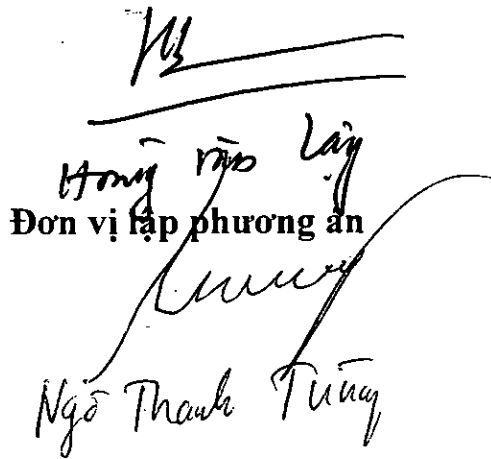 Hoàng văn Lập
Đơn vị lập phương án
Ngô Thanh Tùng